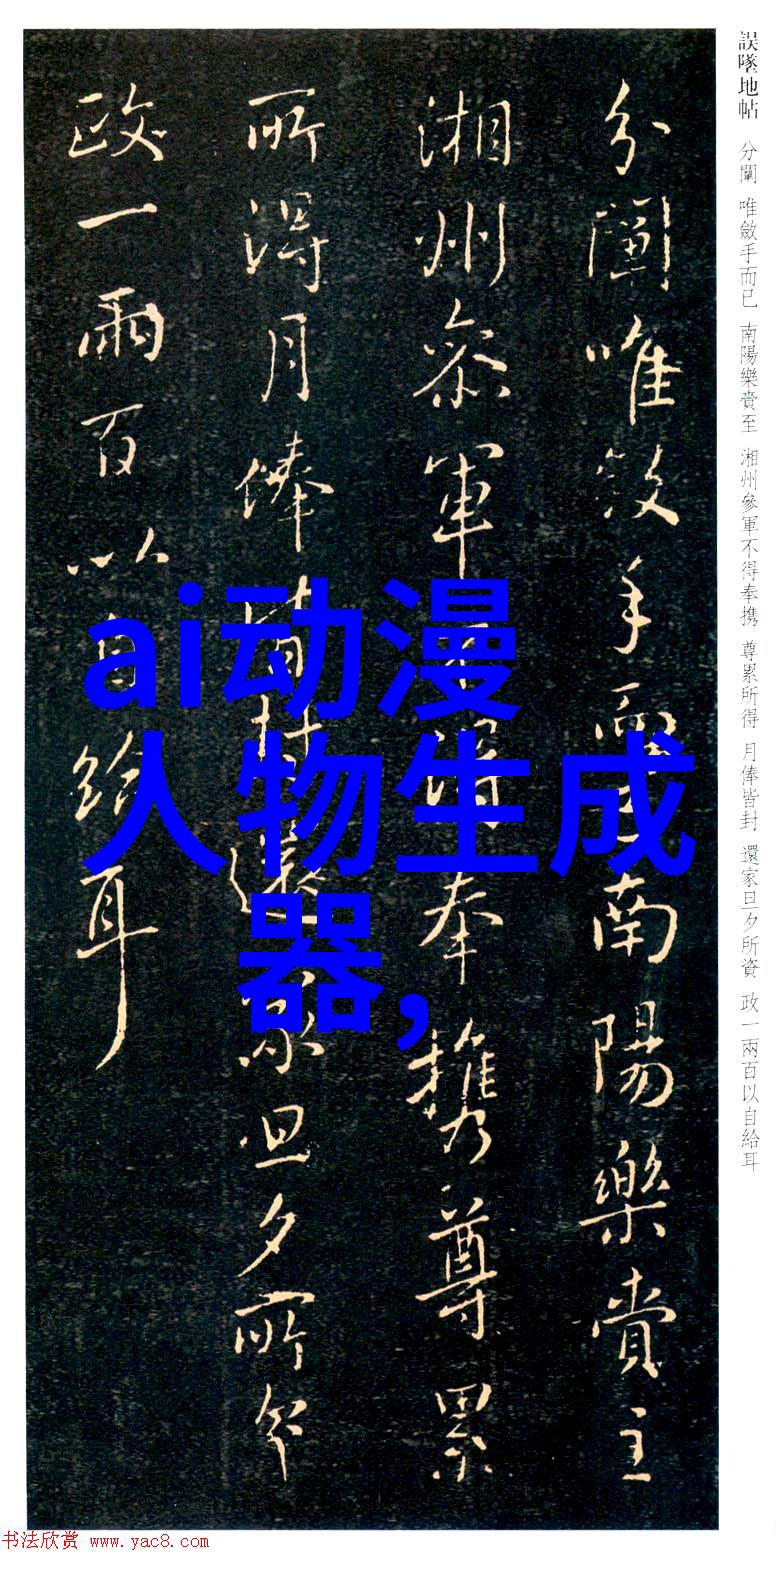 誤墜地帖 分闡 唯斂手而已 南陽樂賞至 湘州參軍不得奉携 尊累所得 月俸皆封 還家旦夕所資 政一兩百以自給耳
分闡唯斂手而已南陽樂賞至
湘州參軍不得奉携尊累
所得月俸皆封還家旦夕所資
政一兩百以自給耳
ai动漫
人物生成
器,
书法欣赏 www.yac8.com